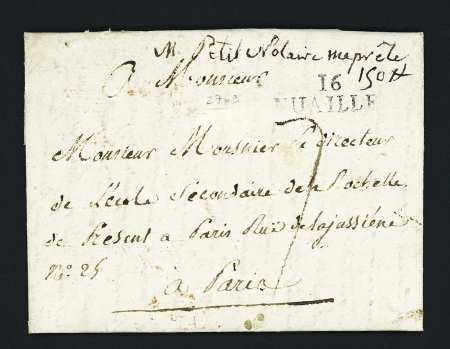 M. Petit Notaire me prête
150 ₶
A Monsieur
16
NUAILLE
Monsieur Monsnier Le directeur
de L'école Secondaire de la Rochelle
de Présent a Paris Rüe de la jussiéne
N.º 25
a Paris
7